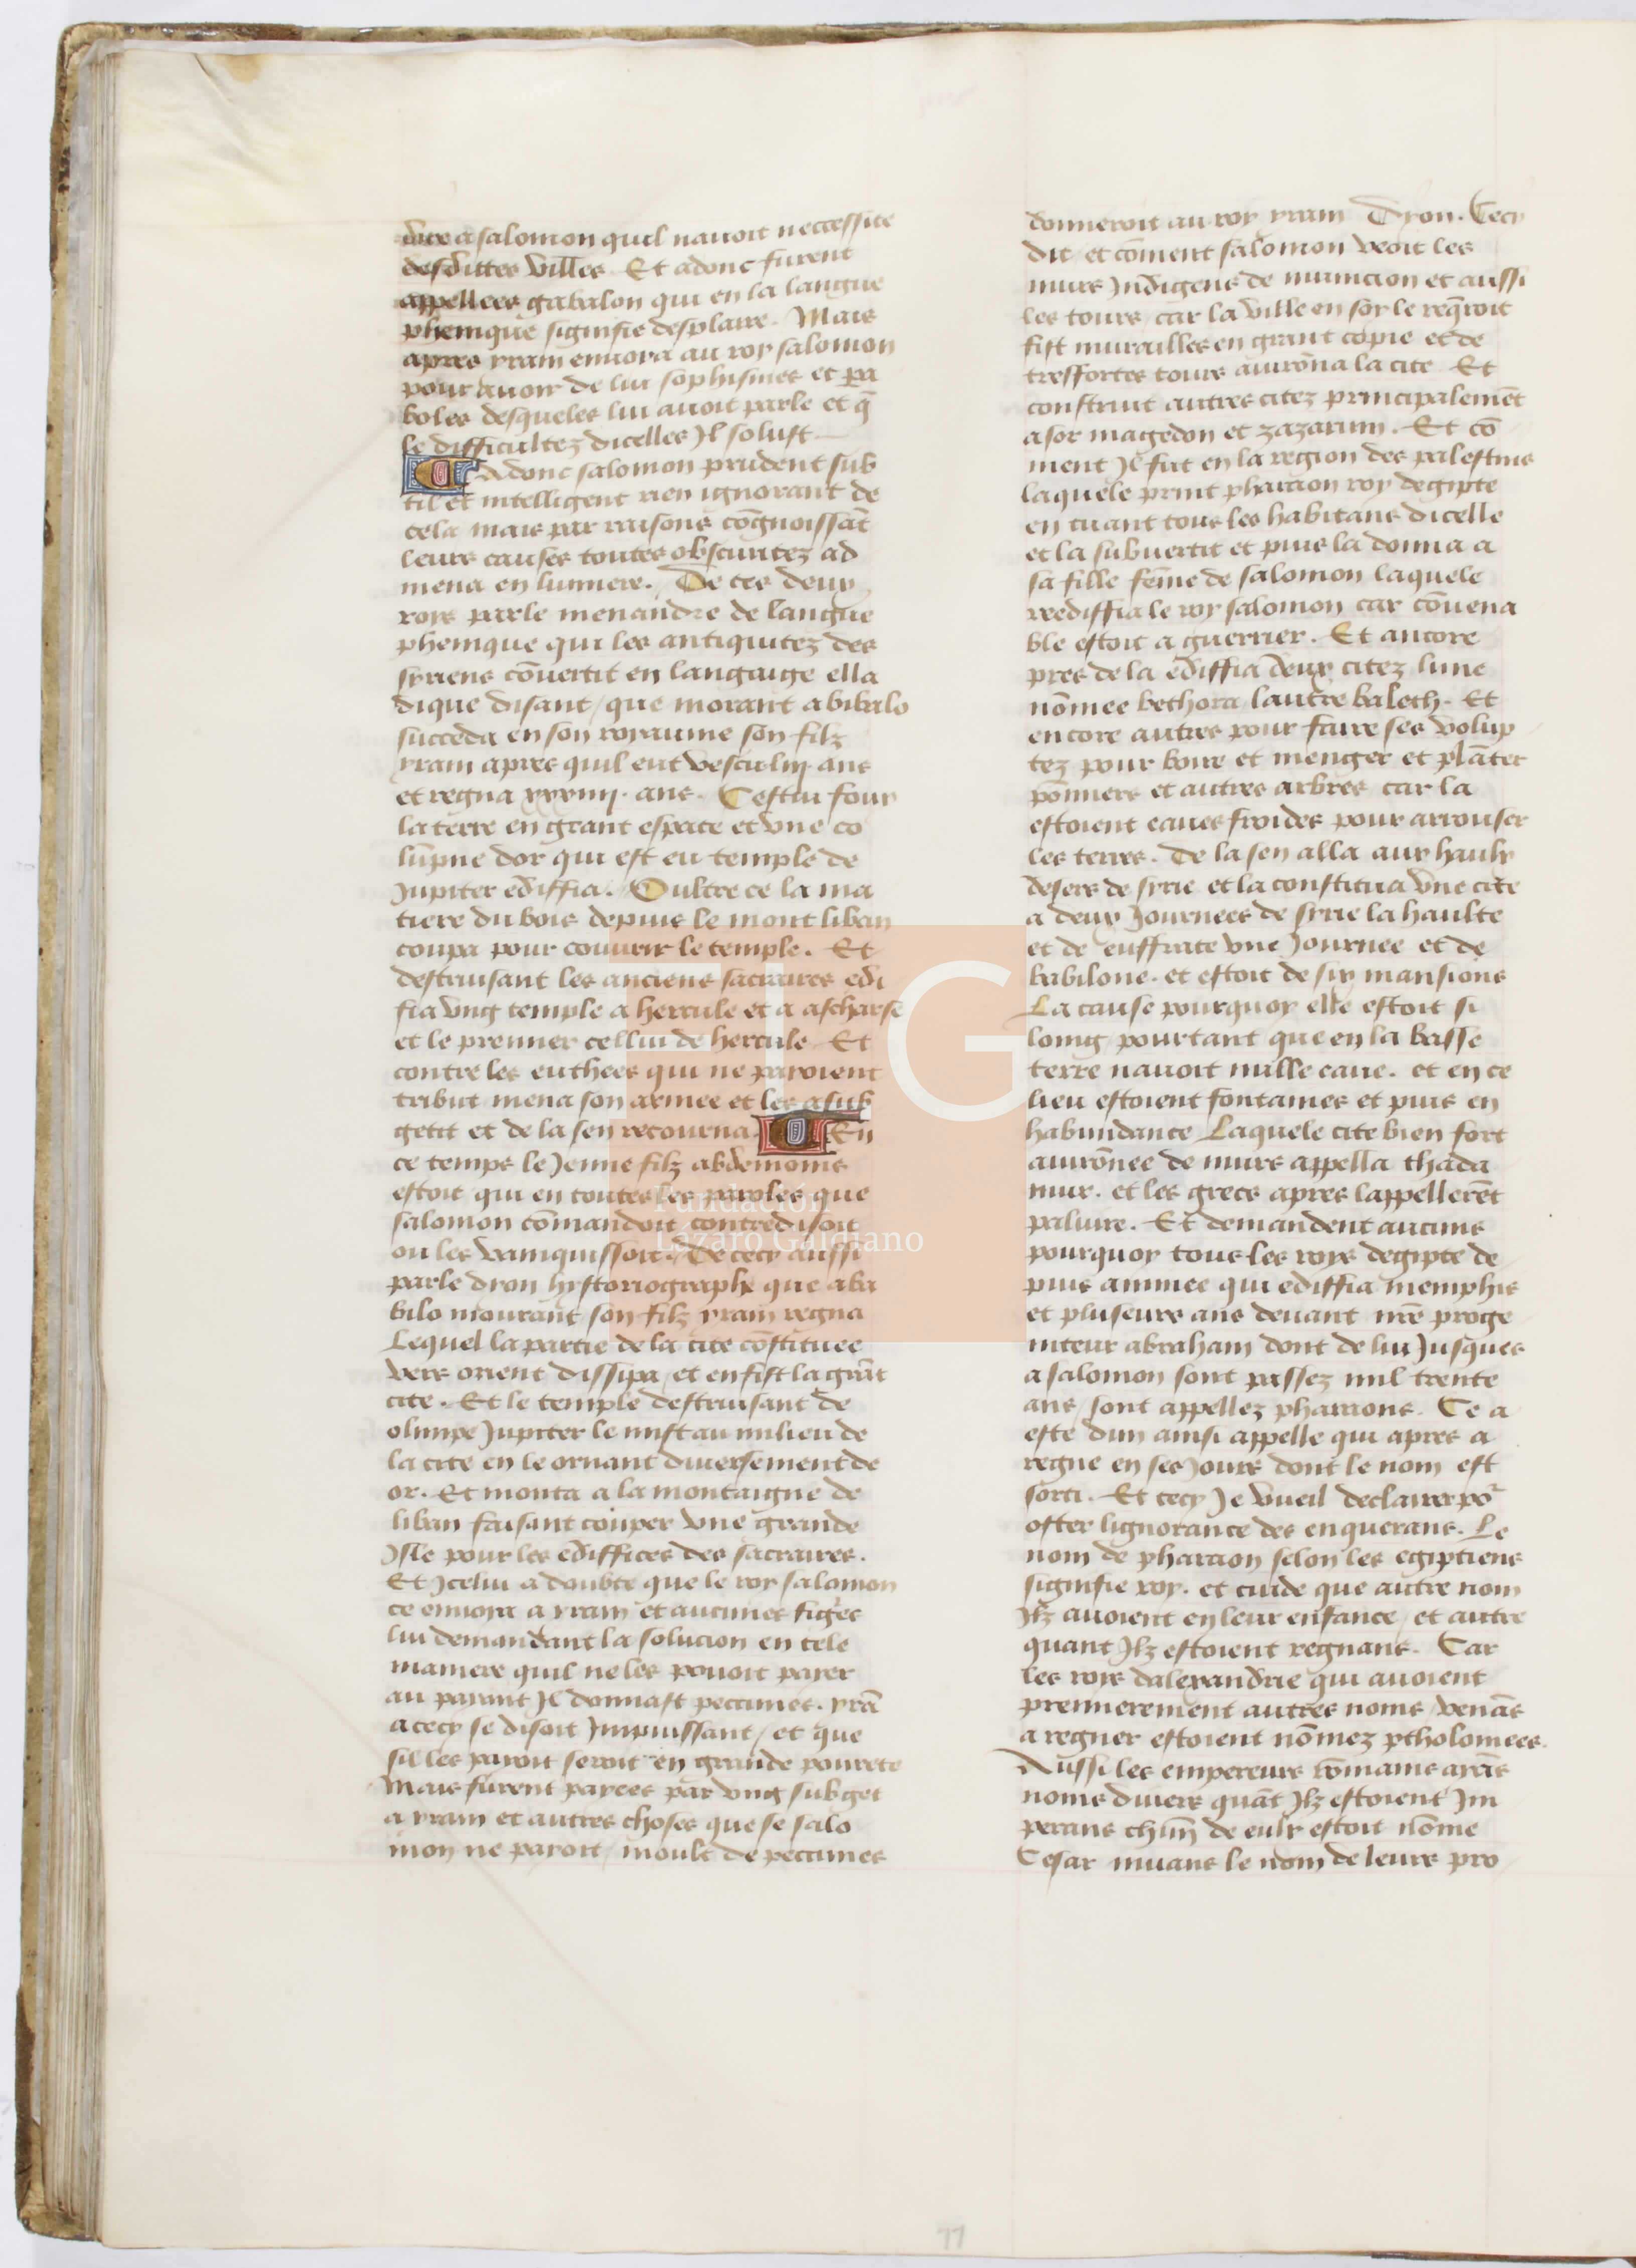 dire a salomon quil nauoit neccessite
desdittes villes Et adonc furent
appellees gabalon qui en la langue
phenique signifie desplaire. Mais
apres yram enuoya au roy salomon
pour auoir de lui sophismes et pa
boles desqueles lui auoit parle et q̄
le difficultez dicelles Jl solust
Adonc salomon prudent sub
til et intelligent rien ignorant de
cela mais par raisons cōgnoissāt
leurs causes toutes obscuritez ad
mena en lumiere. De ces deux
roys parle menandre de langue
phenique qui les antiquitez des
syriens cōuertit en langaige ella
dique disant / que morant abibalo
succeda en son royaume son filz
yram apres quil eut vescu liij. ans
et regna xxxiiij. ans. Cestui four
la terre en grant espace et vne co
lūpne dor qui est eu temple de
Jupiter ediffia. Oultre ce la ma
tiere du bois depuis le mont liban
coupa pour couurir le temple. Et
destruisant les anciens sacraires edi
fia vng temple a hercule et a ascharse
et le premier cellui de hercule Et
contre les euthees qui ne paioient
tribut mena son armee et les asub
getit et de la sen retourna. En
ce temps le Jenne filz abdemoine
estoit qui en toutes les paroles que
salomon cōmandoit contredisoit
ou les vainquissoit. De cecy aussi
parle dion hystoriographe que aba
bilo mourant son filz yram regna
Lequel la partie de la cite cōstituee
vers orient dissipa / et en fist la grāt
cite. Et le temple destruisant de
olimpe Jupiter le mist au milieu de
la cite en le ornant diuersement de
or. Et monta a la montaigne de
liban faisant couper vne grande
Jsle pour les ediffices des sacraires.
Et Jcelui a doubte que le roy salomon
ce enuoya a yram et aucunes figēs
lui demandant la solucion en tele
maniere quil ne les pouoit payer
au payant Jl donnast pecunes. yrā
a cecy se disoit Jmpuissant / et que
sil les paioit seroit en grande pourete
Mais furent payees par vng subget
a yram et autres choses que se salo
mon ne payoit / moult de pecunes
donneroit au roy yram Dyon. Cecy
dit et cōment salomon veoit les
murs Jndigens de municion et aussi
les tours / car la ville en soy le reqroit
fist murailles en grant copie et de
tresfortes tours auirōna la cite Et
construit autres citez principalemēt
asor magedon et zazarum. Et cō
ment Jl fut en la region des palestins
laquele print pharaon roy degipte
en tuant tous les habitans dicelle
et la subuertit et puis la donna a
sa fille fēme de salomon laquele
reediffia le roy salomon car cōuena
ble estoit a guerrier. Et ancore
pres de la ediffia deux citez lune
nōmee bethora lautre baleth. Et
encore autres pour faire ses volup
tez pour boire et menger et plāter
pōmiers et autres arbres car la
estoient eaues froides pour arrouser
les terres. De la sen alla aux haulx
desers de syrie et la constitua vne cite
a deux Journees de syrie la haulte
et de euffrate vne Journee et de
babilone. et estoit de six mansions
La cause pourquoy elle estoit si
loing pourtant que en la basse
terre nauoit nulle eaue. et en ce
lieu estoient fontaines et puis en
habundance Laquele cite bien fort
auirōnee de murs appella thada
mur. et les grecs apres lappellerēt
palmire. Et demandent aucuns
pourquoy tous les roys degipte de
puis aminee qui ediffia memphis
et pluseurs ans deuant nr̄e proge
niteur abraham dont de lui Jusques
a salomon sont passez mil trente
ans / sont appellez pharaons. Ce a
este dun ainsi appelle qui apres a
regne en ses Jours dont le nom est
sorti. Et cecy Je vueil declairer po
oster lignorance des enquerans. Le
nom de pharaon selon les egiptiens
signifie roy. et cuide que autre nom
Jlz auoient en leur enfance / et autre
quant Jlz estoient regnans. Car
les rois dalexandrie qui auoient
premierement autres noms / venās
a regner estoient nōmez ptholomees.
Aussi les empereurs rōmains ayās
noms diuers quāt Jlz estoient Jm
perans chūn de eulx estoit nōme
Cesar muans le nom de leurs pro
FLG
Fundación
Lázaro Galdiano
77